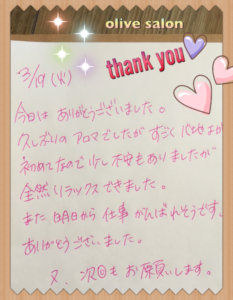 olive salon
thank you
3/19(火)
今日は ありがとうございました。
久しぶりの アロマでしたが すごく
初めてなので 少し不安もありましたが
全然リラックスできました。
また明日から 仕事 がんばれそうです。
ありがとうございました。
又、次回も お願いします。